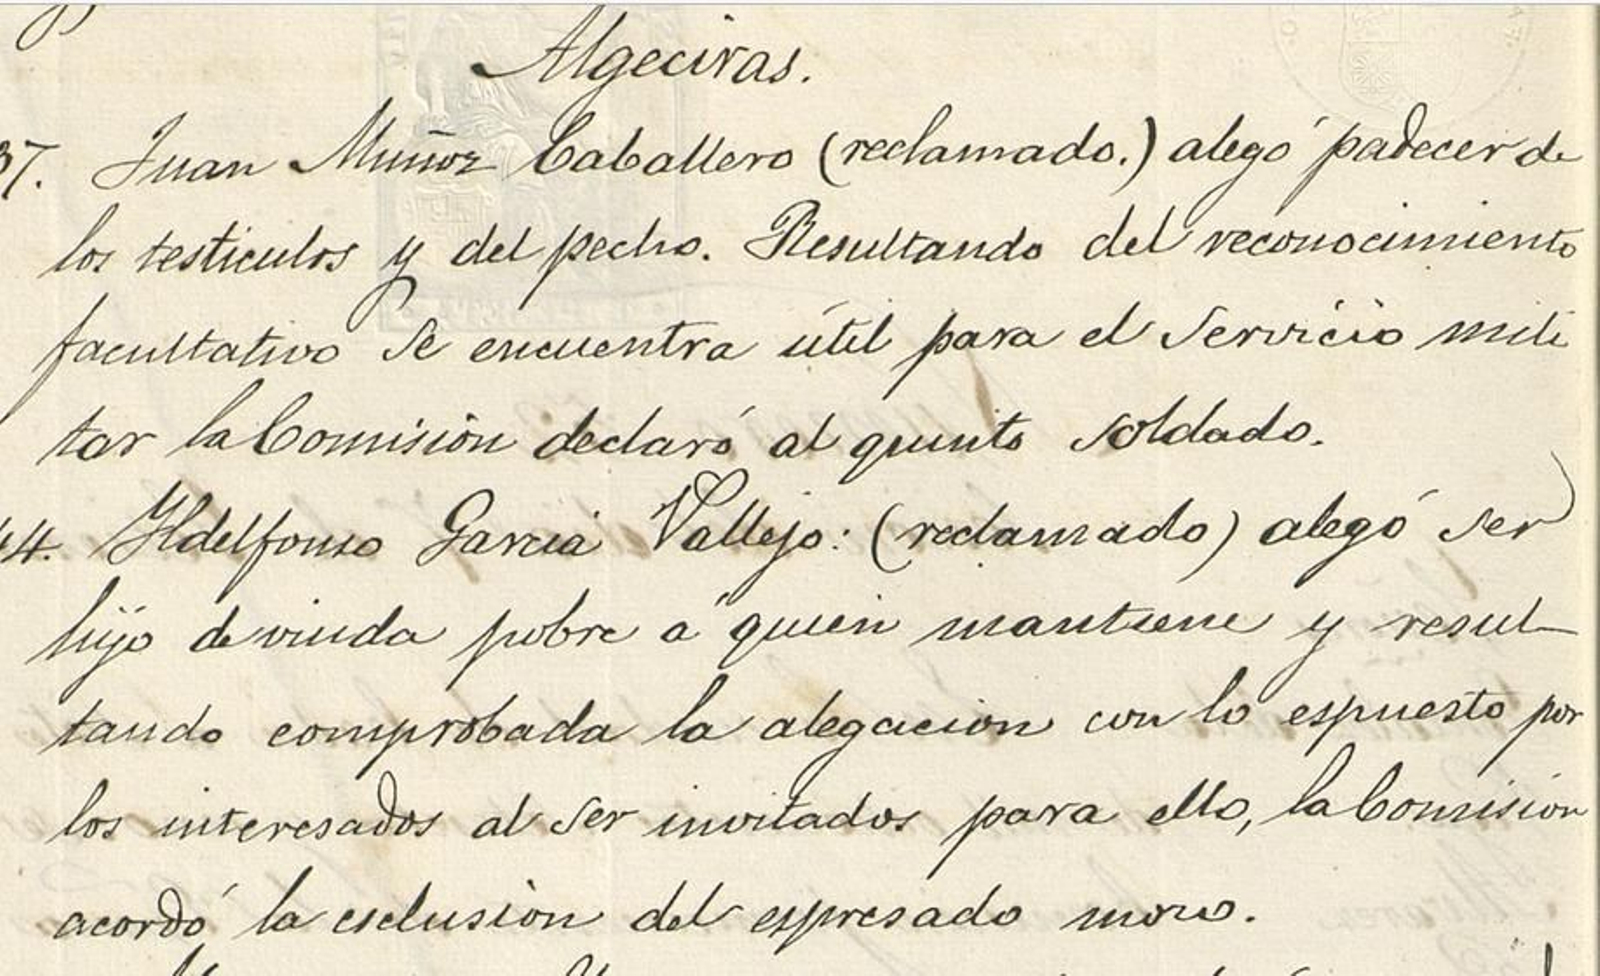 Algeciras.
37. Juan Muñoz Caballero (reclamado.) alegó padecer de
los testiculos y del pecho. Resultando del reconocimiento
facultativo se encuentra útil para el servicio mili
tar la Comisión declaró al quinto soldado.
44. Yldelfonso Garcia Vallejo: (reclamado) alegó ser
hijo de viuda pobre á quien mantiene y resul-
tando comprobada la alegacion con lo espuesto por
los interesados al ser invitados para ello, la Comision
acordó la esclusión del espresado mozo.